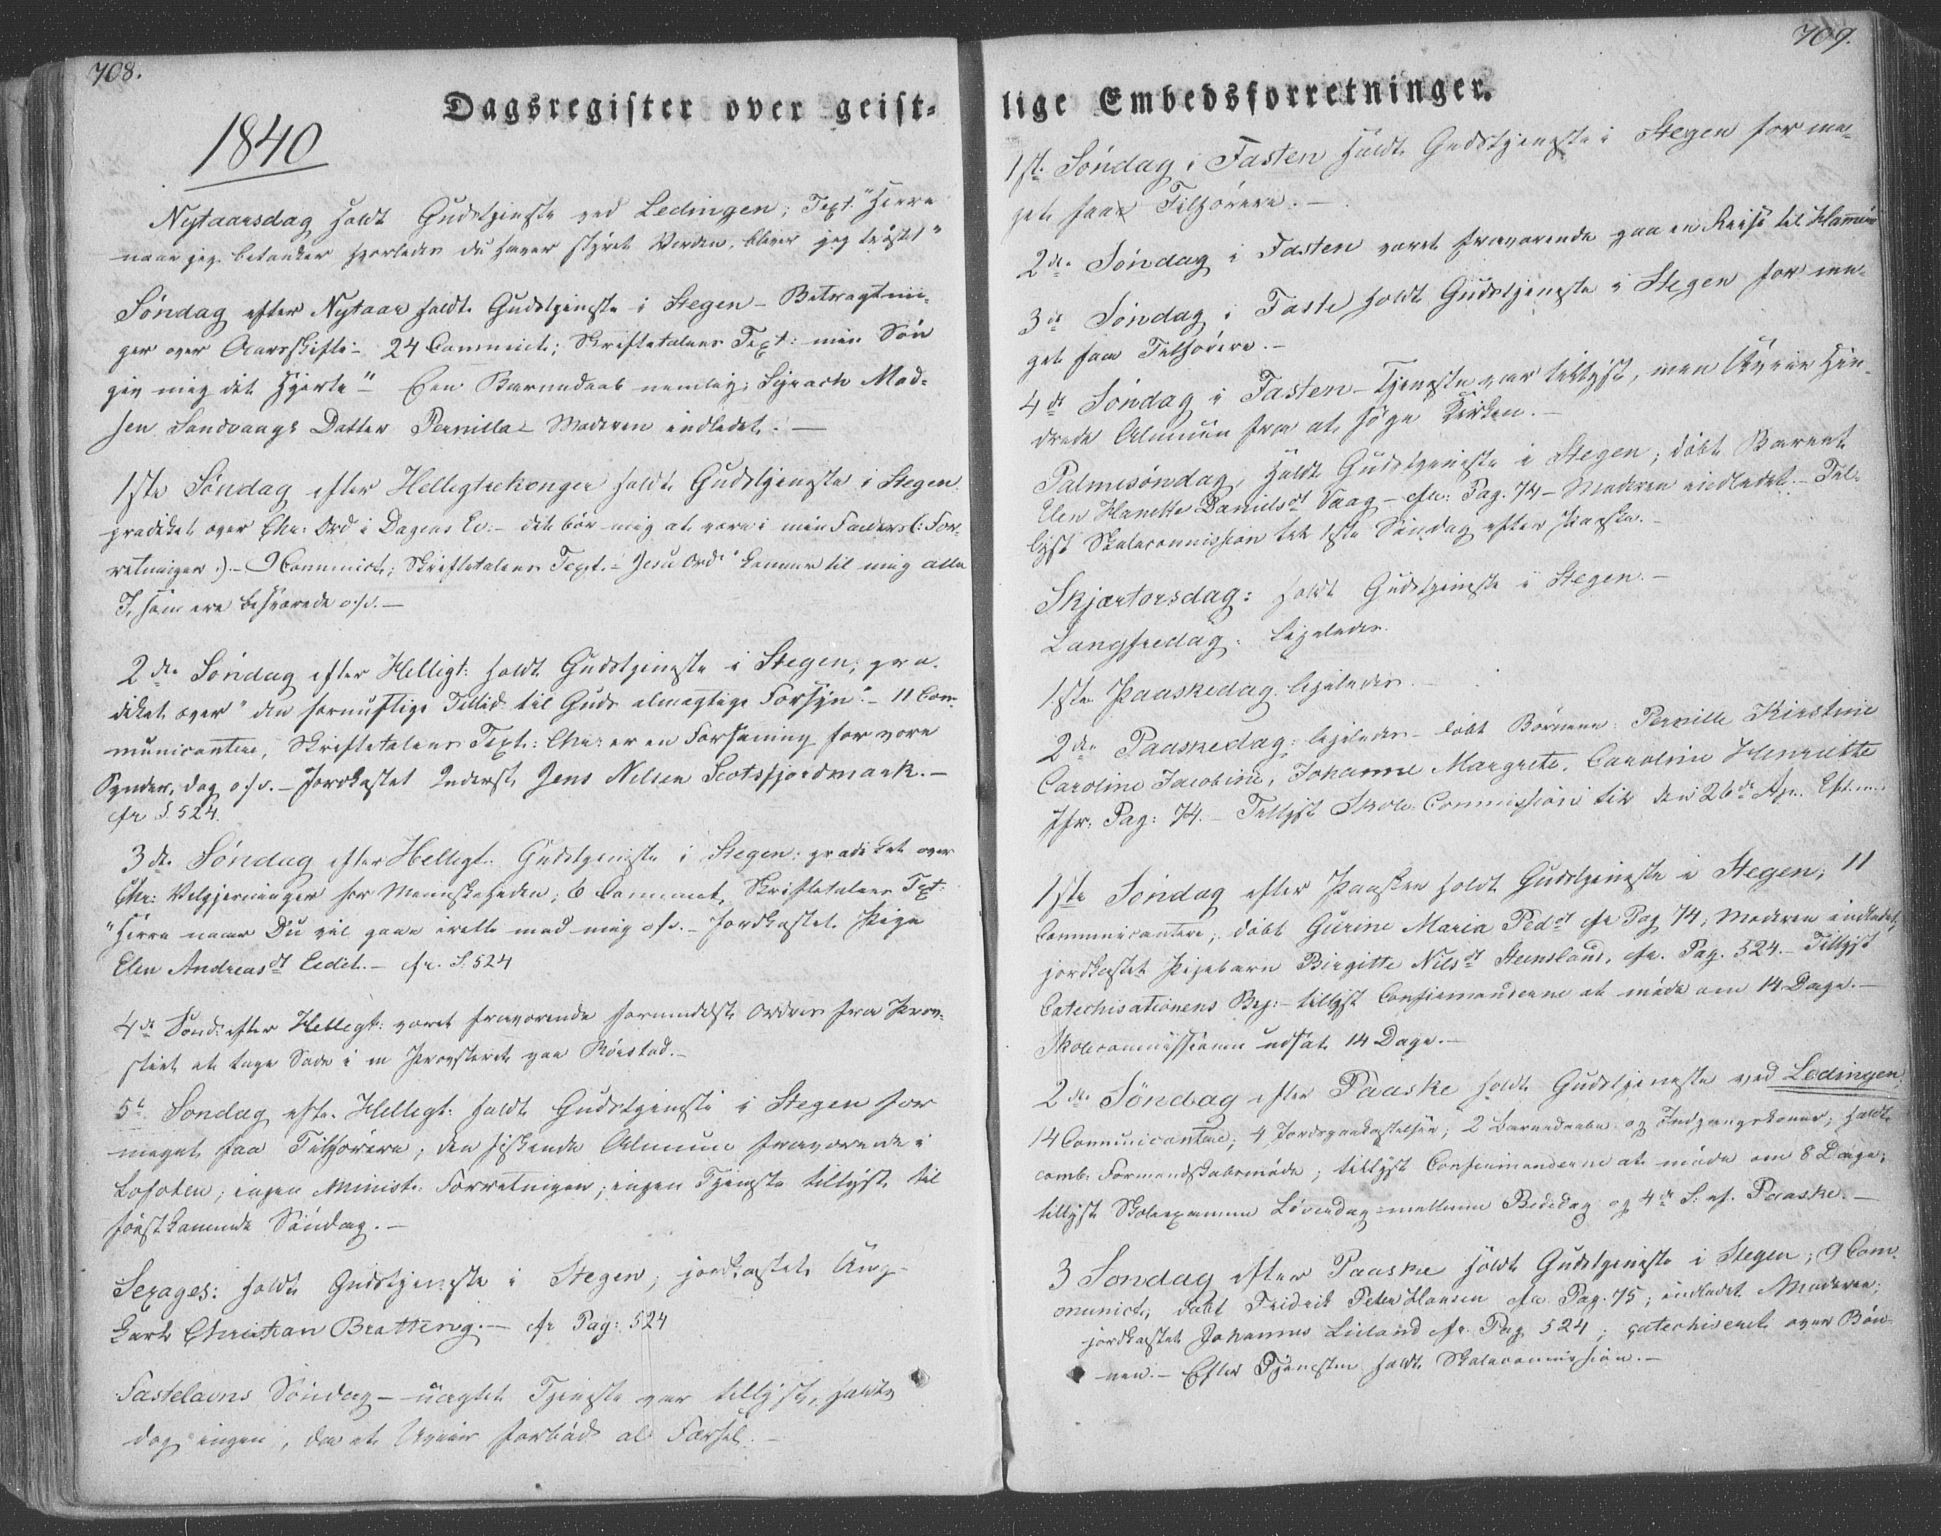 708.
Dagsregister over geist-
1840
Nytaarsdag holdt Gudstjeneste ved Lødingen; Text: "Herre
naar jeg betænker hvorledes du haver styret Verden, bliver jeg trøstet"
Søndag efter Nytaar holdt Gudstjeneste i Stegen – Betragtnin-
ger over Aarsskifte – 24 Communict; Skriftetalens Text: min Søn
giv mig dit Hjerte" – Een Barnedaab nemlig: Syrach Mad-
sen Sandvaags Datter Pernilla – Moderen indledet. –
1ste Søndag efter Helligtrekonger holdt Gudstjeneste i Stegen
prædiket over Chr: Ord i Dagens Ev: – det bør mig at være i min Faders (: For-
retninger :) – 9 Communict; Skriftetalens Text. – Jesu Ord "kommer til mig alle
I, som ere besværede o.s.v. –
2den Søndag efter Helligt: holdt Gudstjeneste i Stegen; præ-
diket over "den fornuftige Tillid til Guds almægtige Forsyn" – 11 Com-
municantere, Skriftetalens Text: Chr: er en Forsoning for vore
Synder, dog o.s.v. – Jordkastet Inderst Jens Nilsen Scotsfjordmark. –
cfr S. 524.
3die Søndag efter Helligt. Gudstjeneste i Stegen: prædiket over
Chr: Velgjerninger for Menneskeheden; 6 Communict, Skriftetalens Text:
"Herre naar Du vil gaae irette med mig o.s.v. – Jordkastet Pige
Elen Andreasdt Eedet. – cfr. S. 524
4de Sønd: efter Helligt: været fraværende formedelst Ordre fra Prov-
stiet at tage Sæde i en Provsteret paa Rørstad. –
5te Søndag efter Helligt: holdt Gudstjeneste i Stegen for
meget faa Tilhørere; den fiskende Almue fraværende i
Lofoten; ingen Minist: Forretninger; ingen Tjeneste tillyst til
førstkommende Søndag. –
Sexages: holdt Gudstjeneste i Stegen; jordkastet Ung-
karl Christian Bratteng. – cfr Pag: 524
Fastelavns Søndag – uagtet Tjeneste var tillyst, holdtes
dog ingen, da et Uveir forbød al Færsel. –
709.
lige Embedsforretninger.
1ste Søndag i Fasten holdt Gudstjeneste i Stegen for me-
get faae Tilhørere. –
2den Søndag i Fasten været fraværende paa en Reise til Hamerø
3die Søndag i Faste holdt Gudstjeneste i Stegen for me-
get faae Tilhørere. –
4de Søndag i Fasten – Tjeneste var tillyst, men Uveir hin-
drede Almuen fra at søge Kirken. –
Palmesøndag, holdt Gudstjeneste i Stegen; døbt Barnet
Elen Hanche Danielsdt Vaag – cfr: Pag. 74 – Moderen indledet – Til-
lyst Skolecommission til 1ste Søndag efter Paaske. –
Skjærtorsdag: holdt Gudstjeneste i Stegen. –
Langfredag: ligeledes.
1ste Paaskedag ligeledes. –
2den Paaskedag; ligeledes – døbt Børnene: Pernille Kirstine
Caroline Jacobine, Johanne Margrete, Caroline Henriette
cfr. Pag: 74. – Tillyst Skole-Commission til den 26de Apr. Efterm.
1ste Søndag efter Paasken holdt Gudstjeneste i Stegen; 11
Communicantere; døbt Gurine Maria Pedt cfr Pag 74; Moderen indledet;
jordkastet Pigebarn Birgitte Nilsdt Steensland, cfr. Pag. 524. – Tillyst
Catechisationens Beg: – tillyst Confirmanderne at møde om 14 Dage. –
Skolecommissionen udsat 14 Dage. –
2den Søndag efter Paaske holdt Gudstjeneste ved Lødingen
14 Communicantere; 4 Jordpaakastelser; 2 Barnedaaber og Indgangskoner; holdt
comb: Formandskabsmøde; tillyst Confirmanderne at møde om 8 Dage;
tillyst Skoleexamen Løverdag mellem Bededag og 4de S. ef. Paaske. –
3 Søndag efter Paaske holdt Gudstjeneste i Stegen; 9 Com-
munict; døbt Fridrik Peter Hansen cfr Pag. 75; indledet Moderen;
jordkastet Johannes Lieland cfr. Pag 524; catechiseret over Bøn-
nen. – Efter Tjenesten holdt Skolecommission. –